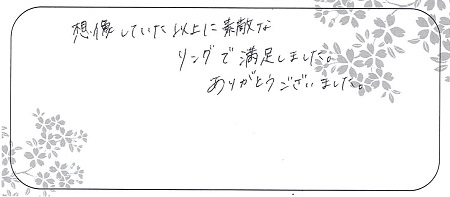 想像していた以上に素敵な
リングで満足しました。
ありがとうございました。